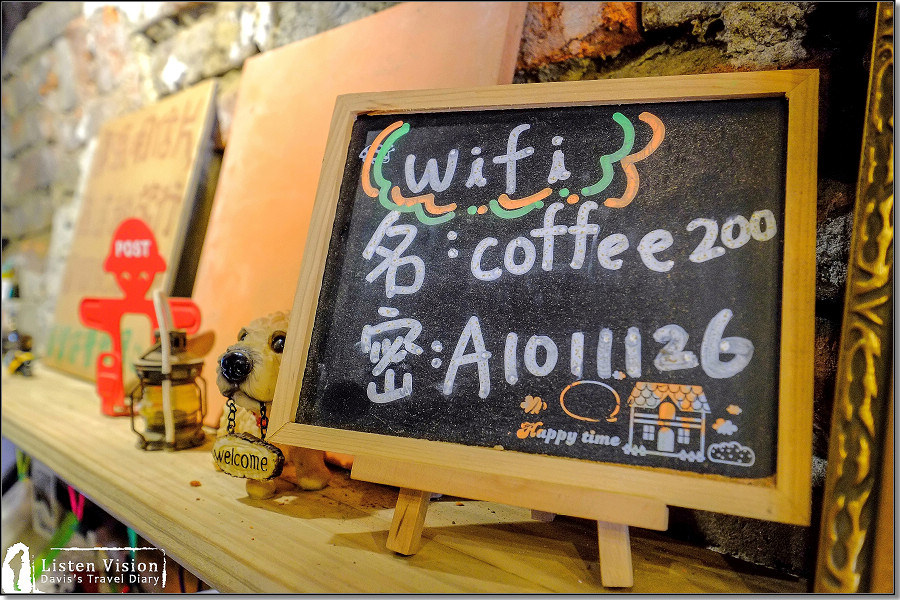 wifi
名:coffee200
密:A1011126
Happy time
POST
welcome
Listen Vision
Davis's Travel Diary